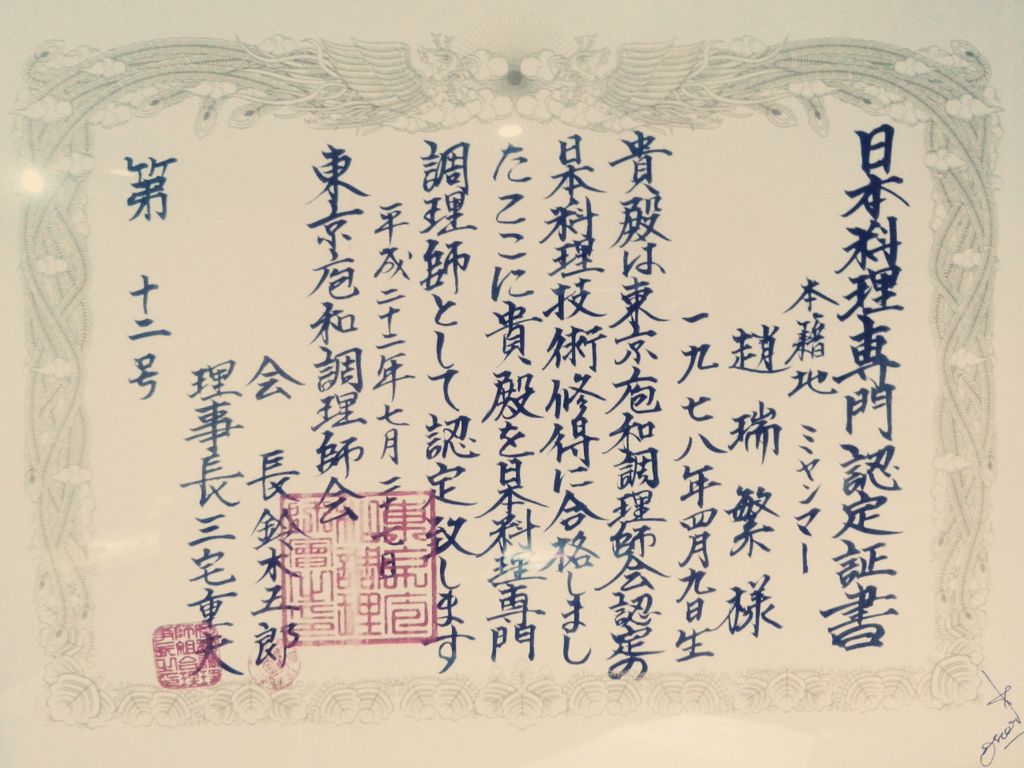 日本料理専門認定証書
本籍地 ミャンマー
趙瑞繁様
一九七八年四月九日生
貴殿は東京庖和調理師会認定の
日本料理技術修得に合格しまし
たここに貴殿を日本料理専門
調理師として認定致します
平成二十二年七月二十八日
東京庖和調理師会
会長 鈴木五郎
理事長 三宅重夫
第 十二号